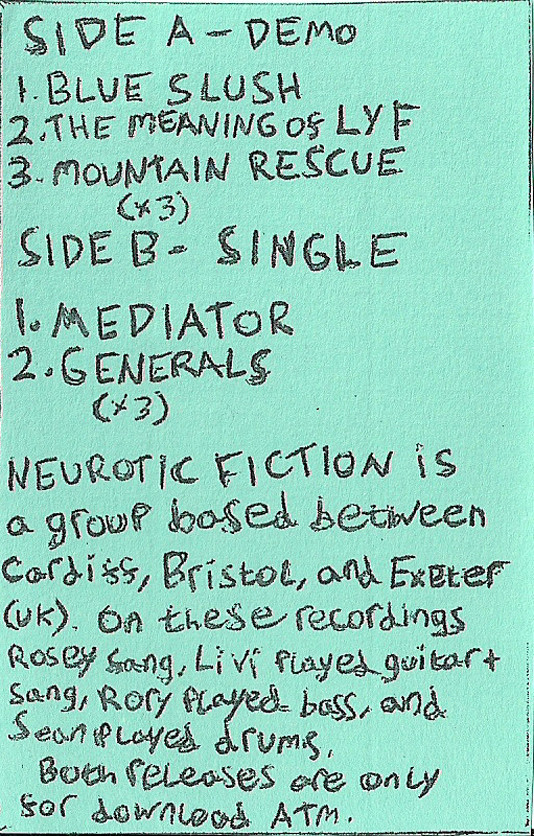 SIDE A - DEMO
1. BLUE SLUSH
2. THE MEANING OF LYF
3. MOUNTAIN RESCUE
(x3)
SIDE B - SINGLE
1. MEDIATOR
2. GENERALS
(x3)
NEUROTIC FICTION is
a group based between
Cardiff, Bristol, and Exeter
(UK). On these recordings
Rosey sang, Livi played guitar +
sang, Rory played bass, and
Sean played drums.
Both releases are only
for download ATM.